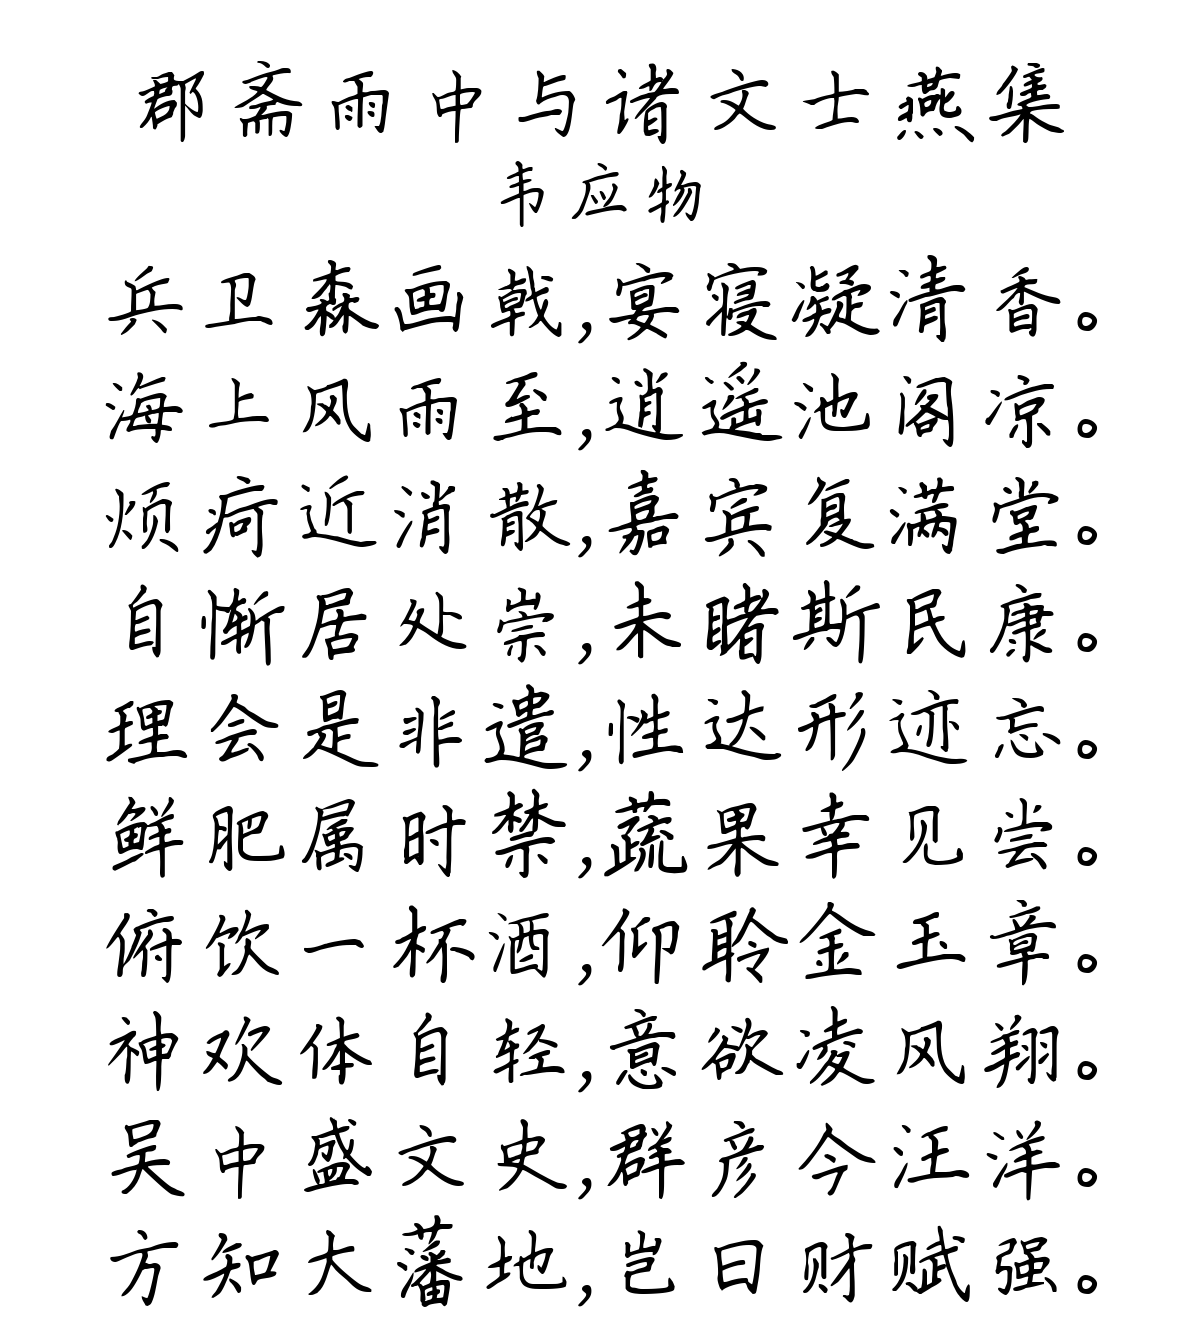 郡斋雨中与诸文士燕集
韦应物
兵卫森画戟,宴寝凝清香。
海上风雨至,逍遥池阁凉。
烦疴近消散,嘉宾复满堂。
自惭居处崇,未睹斯民康。
理会是非遣,性达形迹忘。
鲜肥属时禁,蔬果幸见尝。
俯饮一杯酒,仰聆金玉章。
神欢体自轻,意欲凌风翔。
吴中盛文史,群彦今汪洋。
方知大藩地,岂曰财赋强。